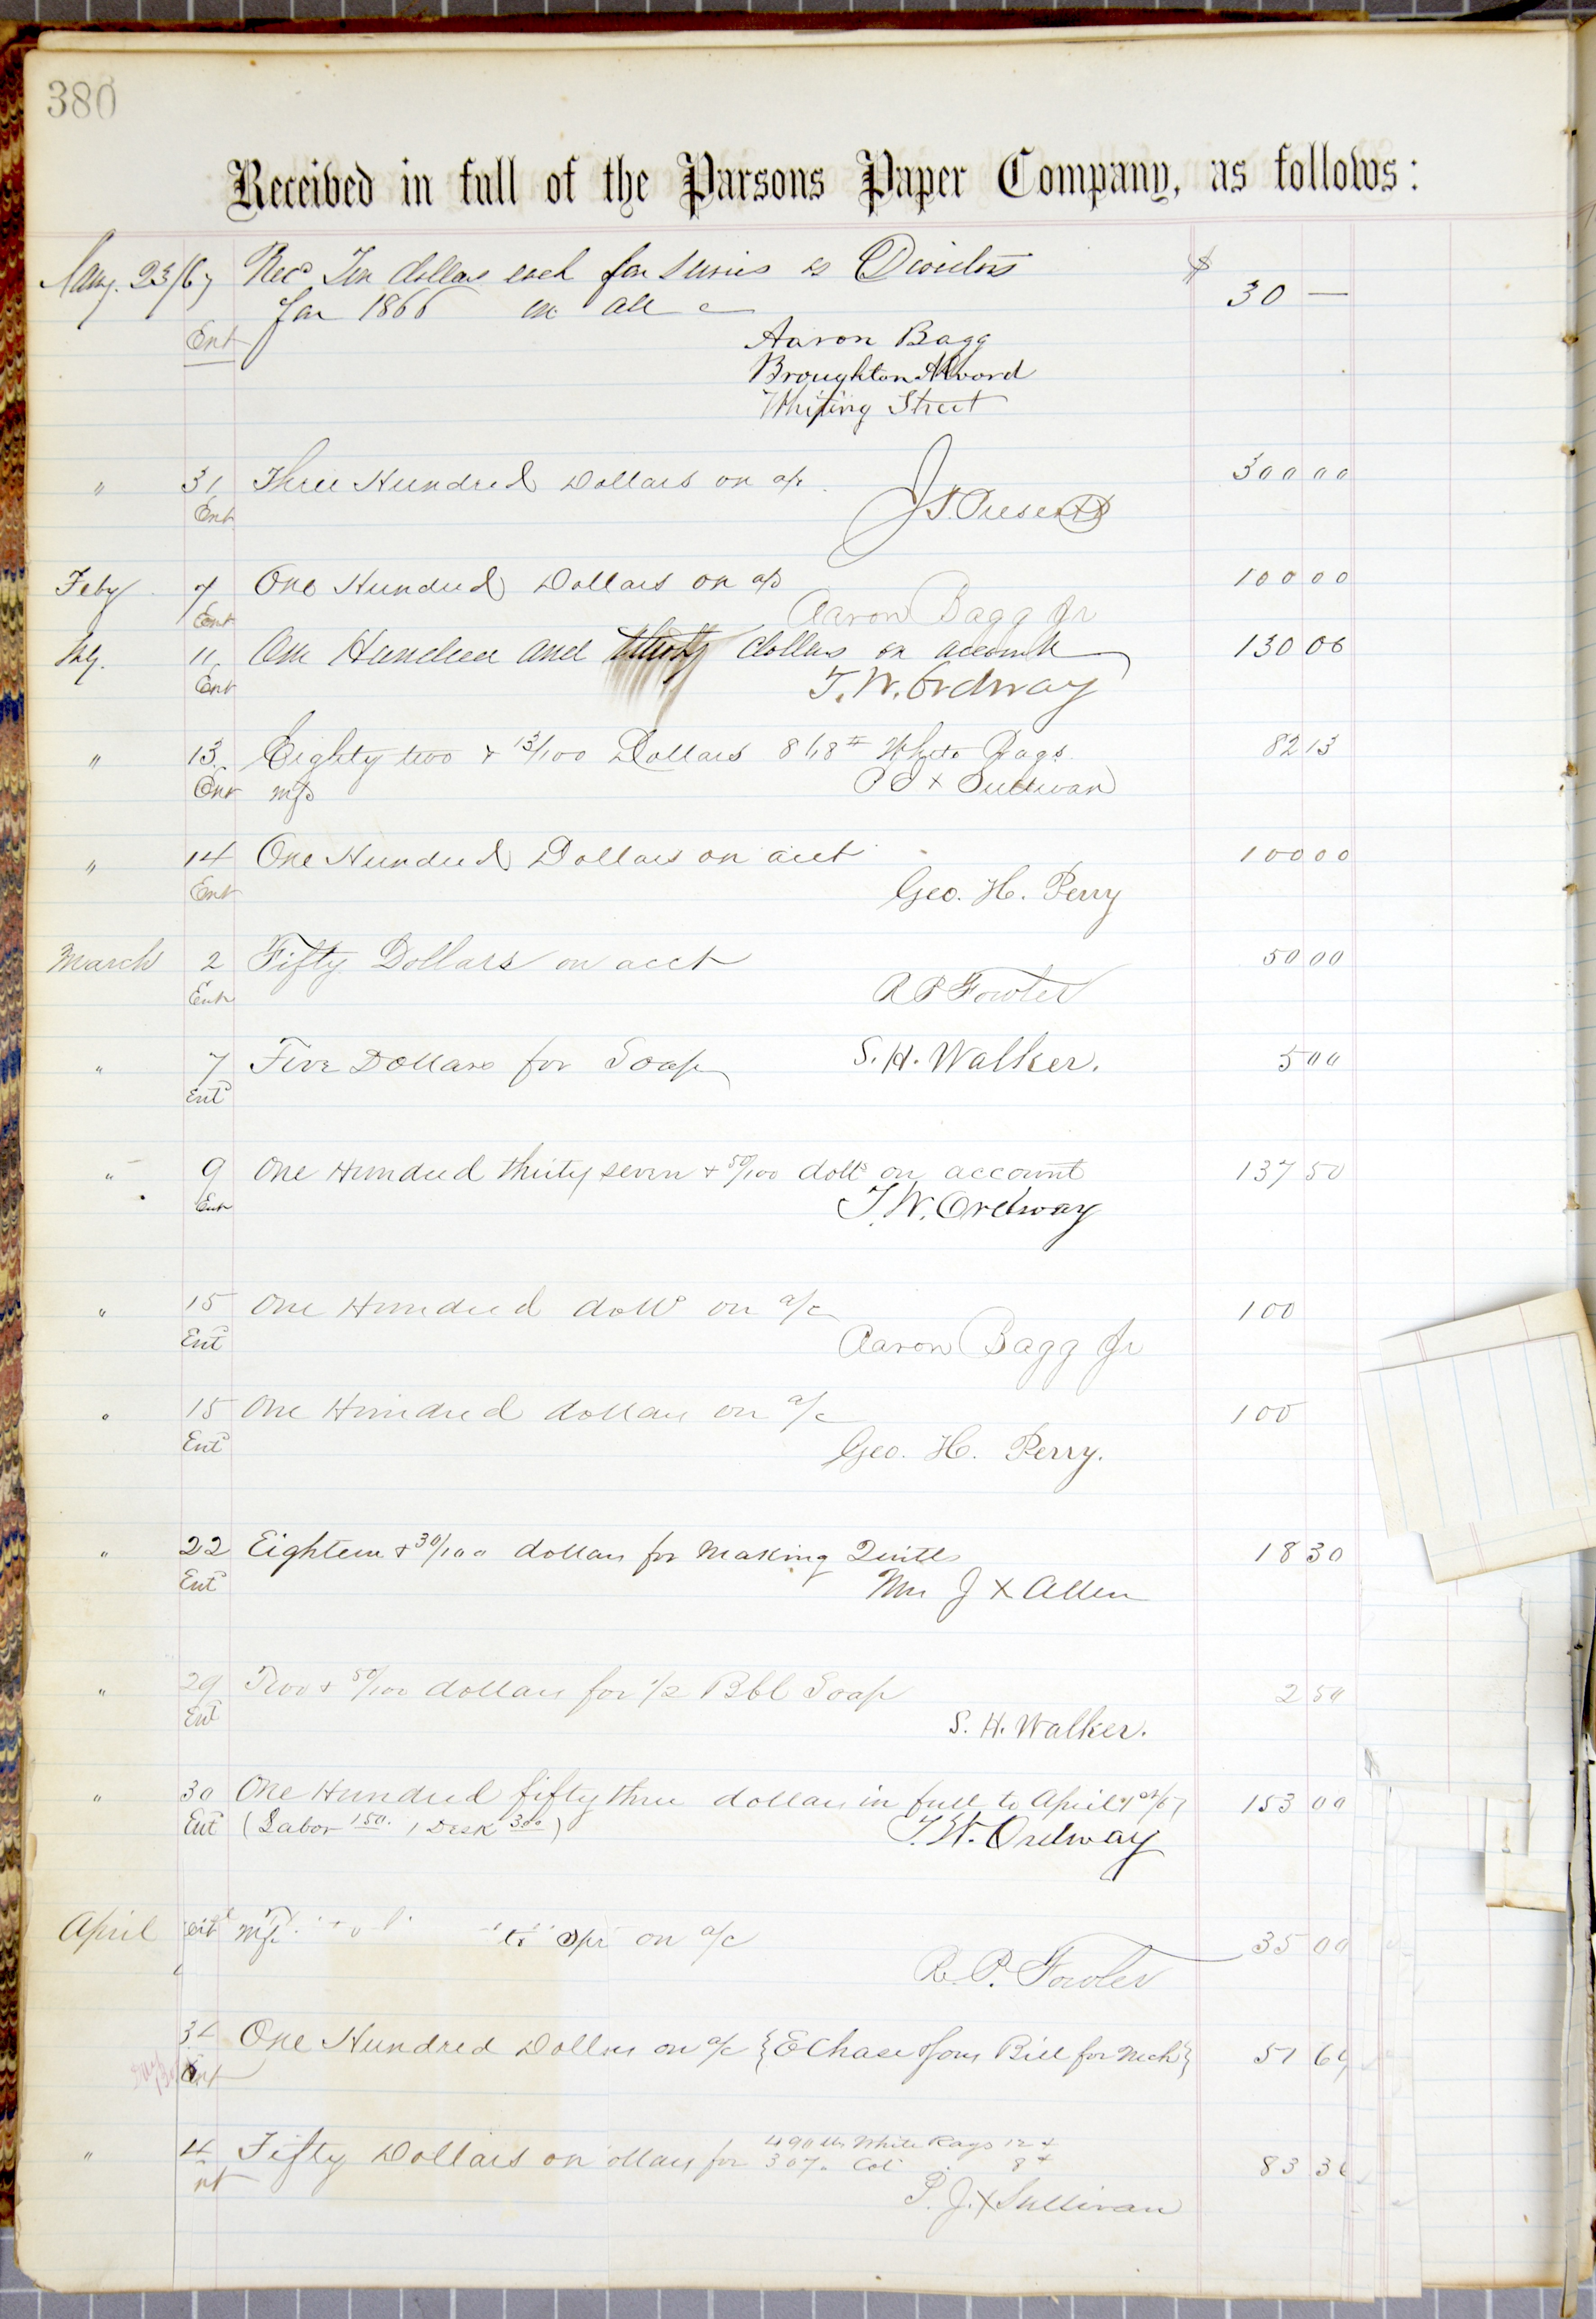 380
Received in full of the Parsons Paper Company, as follows:
Jany. 23/67 Recd Ten dollars each for services as Directors $
for 1866 in all 30 —
Ent
Aaron Bagg
Broughton Alvord
Whiting Street
" 31 Three Hundred Dollars on a/c 300 00
Ent
Feby 7 One Hundred Dollars on a/c 100 00
Ent Aaron Bagg Jr
11 One Hundred and thirty dollars on account 130 00
Ent T. W. Ordway
" 13 Eighty two & 13/100 Dollars 868 # White Rags 82 13
Ent x Sullivan
" 14 One Hundred Dollars on acct 100 00
Ent Geo. H. Perry
March 2 Fifty Dollars on acct 50 00
Ent R P Fowler
" 7 Five Dollars for Soap S. H. Walker. 5 00
Ent
" 9 One Hundred thirty seven & 50/100 dolls on account 137 50
Ent T. W. Ordway
" 15 One Hundred dolls on a/c 100
Ent Aaron Bagg Jr
" 15 One Hundred dollars on a/c 100
Ent Geo. H. Perry.
" 22 Eighteen & 30/100 dollars for making 18 30
Ent Mrs J X Allen
" 29 Two & 50/100 dollars for 1/2 Bbl Soap 2 50
Ent S. H. Walker.
" 30 One Hundred fifty three dollars in full to April 1st/67 153 00
Ent (Labor 150. 1 Desk 3.00)
T. W. Ordway
April on a/c 35 00
R. P. Fowler
One Hundred Dollars on a/c {E Chase & Sons Bill for Mch} 51
Ent
490 lbs White Rags 12 ¢
" 4 Fifty Dollars on ollars for 307 " Col " 8 ¢ 83 36
P. J. X Sullivan